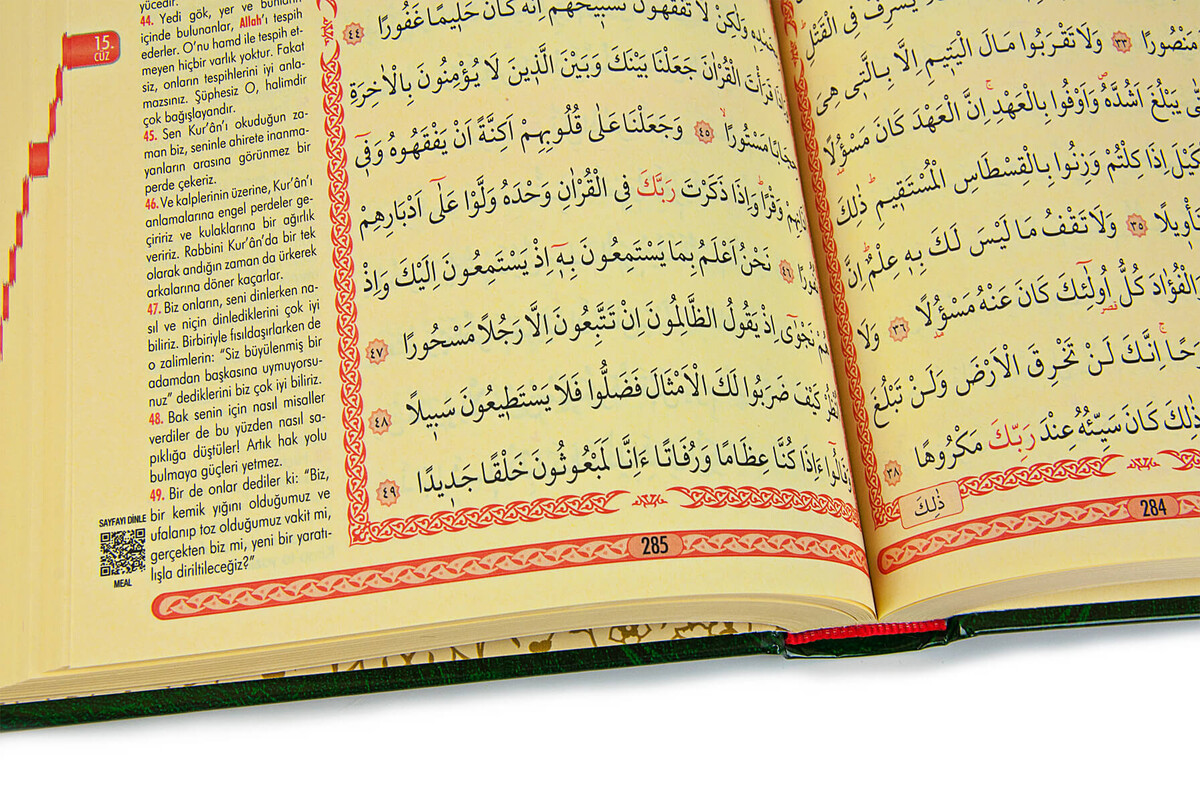 15.
CÜZ
yücedir.
44. Yedi gök, yer ve bunların
içinde bulunanlar, Allah'ı tespih
ederler. O'nu hamd ile tespih et-
meyen hiçbir varlık yoktur. Fakat
siz, onların tespihlerini iyi anla-
mazsınız. Şüphesiz O, halimdir
çok bağışlayandır.
45. Sen Kur'ân'ı okuduğun za-
man biz, seninle ahirete inanma-
yanların arasına görünmez bir
perde çekeriz.
46. Ve kalplerinin üzerine, Kur'ân'ı
anlamalarına engel perdeler ge-
çiririz ve kulaklarına bir ağırlık
veririz. Rabbini Kur'ân'da bir tek
olarak andığın zaman da ürkerek
arkalarına döner kaçarlar.
47. Biz onların, seni dinlerken na-
sıl ve niçin dinlediklerini çok iyi
biliriz. Birbiriyle fısıldaşırlarken de
o zalimlerin: "Siz büyülenmiş bir
adamdan başkasına uymuyorsu-
nuz" dediklerini biz çok iyi biliriz.
48. Bak senin için nasıl misaller
verdiler de bu yüzden nasıl sa-
pıklığa düştüler! Artık hak yolu
bulmaya güçleri yetmez.
49. Bir de onlar dediler ki: "Biz,
bir kemik yığını olduğumuz ve
ufalanıp toz olduğumuz vakit mi,
gerçekten biz mi, yeni bir yaratı-
lışla diriltileceğiz?"
SAYFAYI DİNLE
MEAL
وَلٰكِنْ لَا تَفْقَهُونَ تَسْبٖيحَهُمْ اِنَّهُ كَانَ حَلٖيمًا غَفُورًا ٤٤
قَرَأْتَ الْقُرْاٰنَ جَعَلْنَا بَيْنَكَ وَبَيْنَ الَّذٖينَ لَا يُؤْمِنُونَ بِالْاٰخِرَةِ
حِجَابًا مَسْتُورًا ٤٥ وَجَعَلْنَا عَلٰى قُلُوبِهِمْ اَكِنَّةً اَنْ يَفْقَهُوهُ وَفٖٓى
وَقْرًا وَاِذَا ذَكَرْتَ رَبَّكَ فِى الْقُرْاٰنِ وَحْدَهُ وَلَّوْا عَلٰٓى اَدْبَارِهِمْ
٤٦ نَحْنُ اَعْلَمُ بِمَا يَسْتَمِعُونَ بِهٖٓ اِذْ يَسْتَمِعُونَ اِلَيْكَ وَاِذْ
نَجْوٰٓى اِذْ يَقُولُ الظَّالِمُونَ اِنْ تَتَّبِعُونَ اِلَّا رَجُلًا مَسْحُورًا ٤٧
كَيْفَ ضَرَبُوا لَكَ الْاَمْثَالَ فَضَلُّوا فَلَا يَسْتَطٖيعُونَ سَبٖيلًا ٤٨
وَقَالُٓوا ءَاِذَا كُنَّا عِظَامًا وَرُفَاتًا ءَاِنَّا لَمَبْعُوثُونَ خَلْقًا جَدٖيدًا ٤٩
285
يُسْرِفْ فِى الْقَتْلِ
مَنْصُورًا ٣٣ وَلَا تَقْرَبُوا مَالَ الْيَتٖيمِ اِلَّا بِالَّتٖى هِىَ
يَبْلُغَ اَشُدَّهُ وَاَوْفُوا بِالْعَهْدِ اِنَّ الْعَهْدَ كَانَ مَسْؤُلًا
اِذَا كِلْتُمْ وَزِنُوا بِالْقِسْطَاسِ الْمُسْتَقٖيمِ ذٰلِكَ
تَأْوٖيلًا ٣٥ وَلَا تَقْفُ مَا لَيْسَ لَكَ بِهٖ عِلْمٌ اِنَّ
وَالْفُؤَادَ كُلُّ اُولٰٓئِكَ كَانَ عَنْهُ مَسْؤُلًا ٣٦ وَلَا
اِنَّكَ لَنْ تَخْرِقَ الْاَرْضَ وَلَنْ تَبْلُغَ
ذٰلِكَ كَانَ سَيِّئُهُ عِنْدَ رَبِّكَ مَكْرُوهًا ٣٨
ذٰلِكَ
284